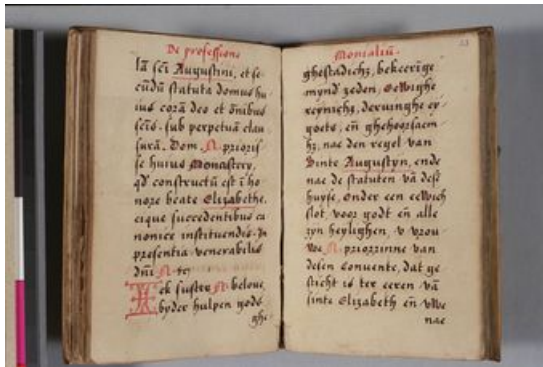 De professione
lā sc̄i Augustini, et se-
cūdū statuta domus hu
ius corā deo et om̄ibus
sc̄is. sub perpetuā clau
surā. Dom. N. prioris
se huius Monastery,
qd̄ constructū est ī ho
nore beate Elizabethe,
eique succedentibus ca
nonice instituendis. In
presentia venerabilis
dn̄i N. etc
Ick suster N. belove,
byder hulpen gods
ghe
Monialiū. 23
ghestadichz, bekeerige
mynd zeden, eewighe
reynichz, dervinghe ey
goets, en̄ ghehoorsaem
hz, nae den regel van
Sinte Augustyn, ende
nae de statuten vā dese
huyse, onder een eewich
slot, voor godt en̄ alle
zyn heylighen, v vrou
we N. priorinne van
desen Convente, dat ge
sticht is ter eeren vā
sinte Elizabeth en̄ vwe
nae